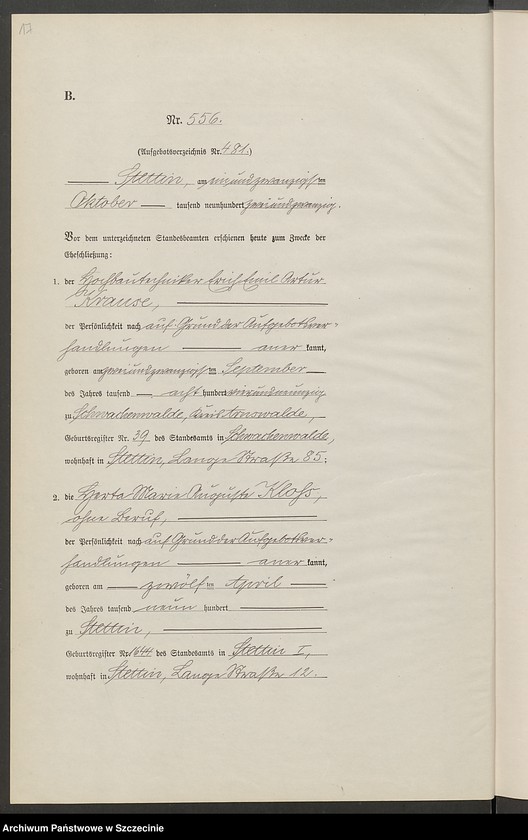 17
B.
Nr. 556.
(Aufgebotsverzeichnis Nr. 481.)
Stettin, am einundzwanzigsten
Oktober tausend neunhundert zweiundzwanzig.
Vor dem unterzeichneten Standesbeamten erschienen heute zum Zwecke der
Eheschließung:
1. der Hochbautechniker Erich Emil Artur
Krause,
der Persönlichkeit nach auf Grund der Aufgebotsver-
handlungen anerkannt,
geboren am zweiundzwanzigsten September
des Jahres tausend acht hundert vierundneunzig
zu Schwachenwalde, Kreis Arnswalde,
Geburtsregister Nr. 39 des Standesamts in Schwachenwalde,
wohnhaft in Stettin, Lange Straße 85;
2. die Herta Marie Auguste Klohs,
ohne Beruf,
der Persönlichkeit nach auf Grund der Aufgebotsver-
handlungen anerkannt,
geboren am zwölften April
des Jahres tausend neun hundert
zu Stettin,
Geburtsregister Nr. 1644 des Standesamts in Stettin I,
wohnhaft in Stettin, Lange Straße 12.
Archiwum Państwowe w Szczecinie